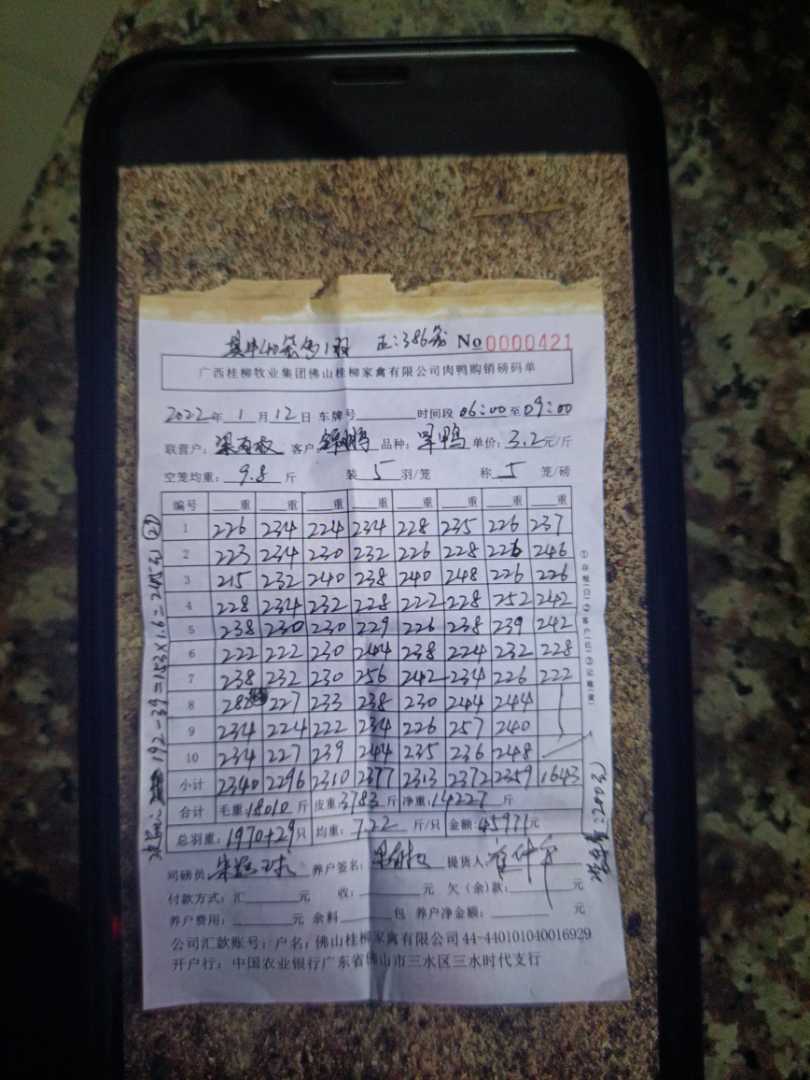 其中40笼每1羽 正:386笼 No 0000421
广西桂柳牧业集团佛山桂柳家禽有限公司肉鸭购销磅码单
2022年1月12日 车牌号 时间段 06:00至09:00
联营户: 客户 品种: 鸭 单价: 3.2元/斤
空笼均重: 9.8 斤 装 5 羽/笼 称 5 笼/磅
编号 重 重 重 重 重 重 重 重
1 226 234 224 234 228 235 226 237
2 223 234 230 232 226 228 226 246
3 215 232 240 238 240 248 226 226
4 228 234 232 228 222 228 252 242
5 238 230 230 229 226 238 239 242
6 222 222 230 244 238 224 232 228
7 238 232 230 256 242 234 226 222
8 227 233 238 230 244 244
9 234 224 222 234 226 257 240
10 234 227 239 244 235 236 248
小计 2340 2296 2310 2377 2313 2372 2359 1643
合计 毛重:18010斤 皮重:3783斤 净重:14227斤
总羽重: 1970+29只 均重: 7.22 斤/只 金额:45971元
司磅员 养户签名: 提货人:
付款方式: 汇 元 收: 元 欠(余)款: 元
养户费用: 元 余料 包 养户净金额: 元
公司汇款账号: 户名: 佛山桂柳家禽有限公司 44-440101040016929
开户行: 中国农业银行广东省佛山市三水区三水时代支行
192-39=153×1.6=245元